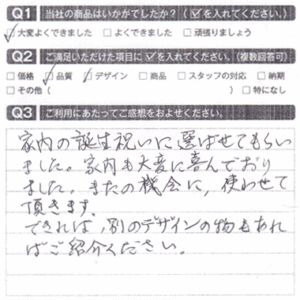 Q1 当社の商品はいかがでしたか？（☑を入れてください。）
☑大変よくできました □よくできました □頑張りましょう
Q2 ご満足いただけた項目に☑を入れてください。（複数回答可）
□価格 ☑品質 ☑デザイン □商品 □スタッフの対応 □納期
□その他（ ） □特になし
Q3 ご利用にあたってご感想をおよせください。
家内の誕生祝いに選ばせてもらい
ました。家内も大変に喜んでおり
ました。またの機会に、使わせて
頂きます。
できれば、別のデザインの物もあれ
ばご紹介ください。